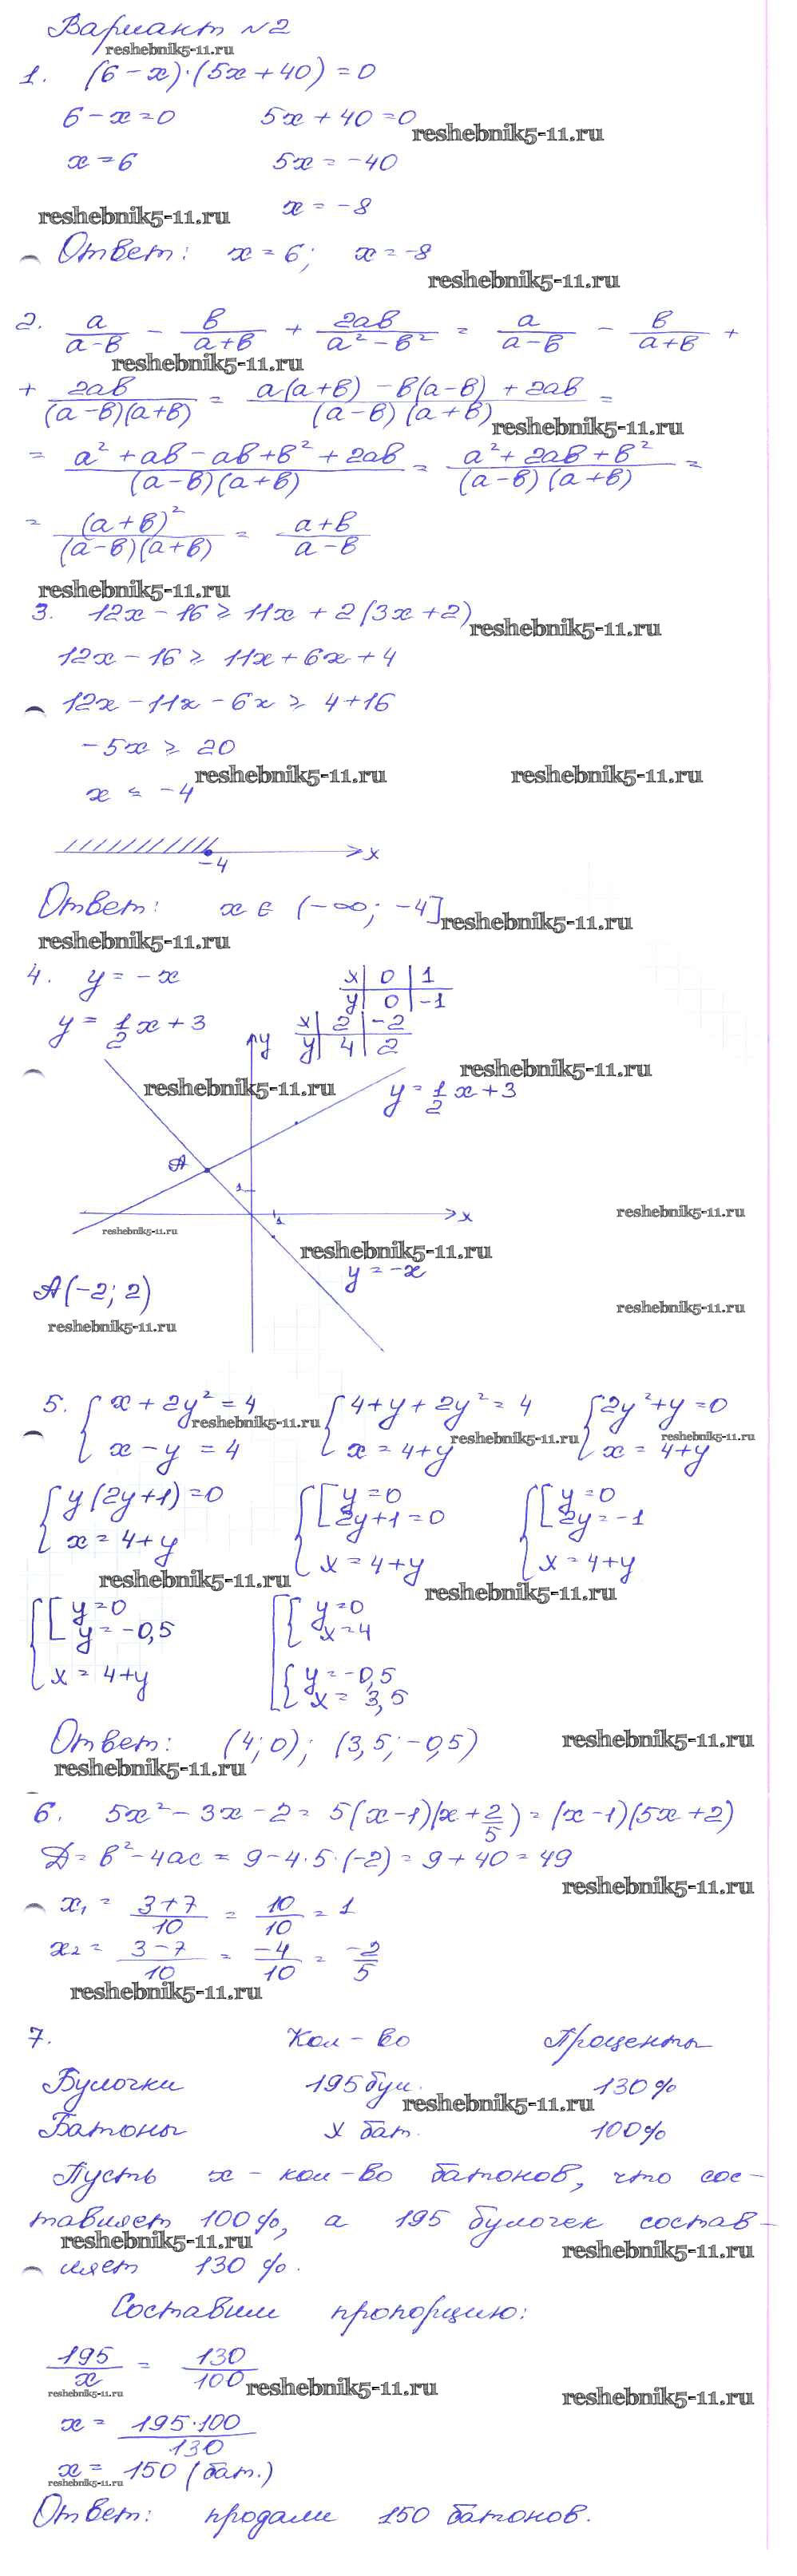 Вариант №2
reshebnik5-11.ru
1. (6-x)·(5x+40)=0
6-x=0 5x+40=0
reshebnik5-11.ru
x=6 5x=-40
reshebnik5-11.ru x=-8
Ответ: x=6; x=-8
reshebnik5-11.ru
2. a/(a-в) - в/(a+в) + 2aв/(a²-в²) = a/(a-в) - в/(a+в) +
reshebnik5-11.ru
+ 2aв/((a-в)(a+в)) = (a(a+в)-в(a-в)+2aв)/((a-в)(a+в)) =
reshebnik5-11.ru
= (a²+aв-aв+в²+2aв)/((a-в)(a+в)) = (a²+2aв+в²)/((a-в)(a+в)) =
= (a+в)²/((a-в)(a+в)) = (a+в)/(a-в)
reshebnik5-11.ru
3. 12x-16≥11x+2(3x+2)
reshebnik5-11.ru
12x-16≥11x+6x+4
12x-11x-6x≥4+16
-5x≥20
reshebnik5-11.ru reshebnik5-11.ru
x≤-4
-4 x
Ответ: x∈(-∞; -4]
reshebnik5-11.ru
reshebnik5-11.ru
4. y=-x x | 0 | 1
y | 0 | -1
y=1/2x+3 x | 2 | -2
y y | 4 | 2
reshebnik5-11.ru
reshebnik5-11.ru
y=1/2x+3
A
1
1 x
reshebnik5-11.ru
reshebnik5-11.ru
reshebnik5-11.ru
y=-x
A(-2; 2)
reshebnik5-11.ru
reshebnik5-11.ru
5. {x+2y²=4 {4+y+2y²=4 {2y²+y=0
reshebnik5-11.ru reshebnik5-11.ru reshebnik5-11.ru
x-y=4 x=4+y x=4+y
{y(2y+1)=0 {[y=0 {[y=0
2y+1=0 2y=-1
x=4+y x=4+y x=4+y
reshebnik5-11.ru
reshebnik5-11.ru
{[y=0 [{y=0
y=-0,5 x=4
x=4+y {y=-0,5
x=3,5
Ответ: (4; 0); (3,5; -0,5)
reshebnik5-11.ru
reshebnik5-11.ru
6. 5x²-3x-2=5(x-1)(x+2/5)=(x-1)(5x+2)
Д=в²-4ac=9-4·5·(-2)=9+40=49
reshebnik5-11.ru
x₁=(3+7)/10=10/10=1
x₂=(3-7)/10=-4/10=-2/5
reshebnik5-11.ru
7. Кол-во Проценты
Булочки 195 бул. 130%
reshebnik5-11.ru
Батоны x бат. 100%
Пусть x - кол-во батонов, что сос-
тавляет 100%, а 195 булочек состав-
reshebnik5-11.ru
reshebnik5-11.ru
ляет 130%.
Составим пропорцию:
195/x=130/100
reshebnik5-11.ru
reshebnik5-11.ru
reshebnik5-11.ru
x=195·100/130
x=150 (бат.)
reshebnik5-11.ru
Ответ: продали 150 батонов.